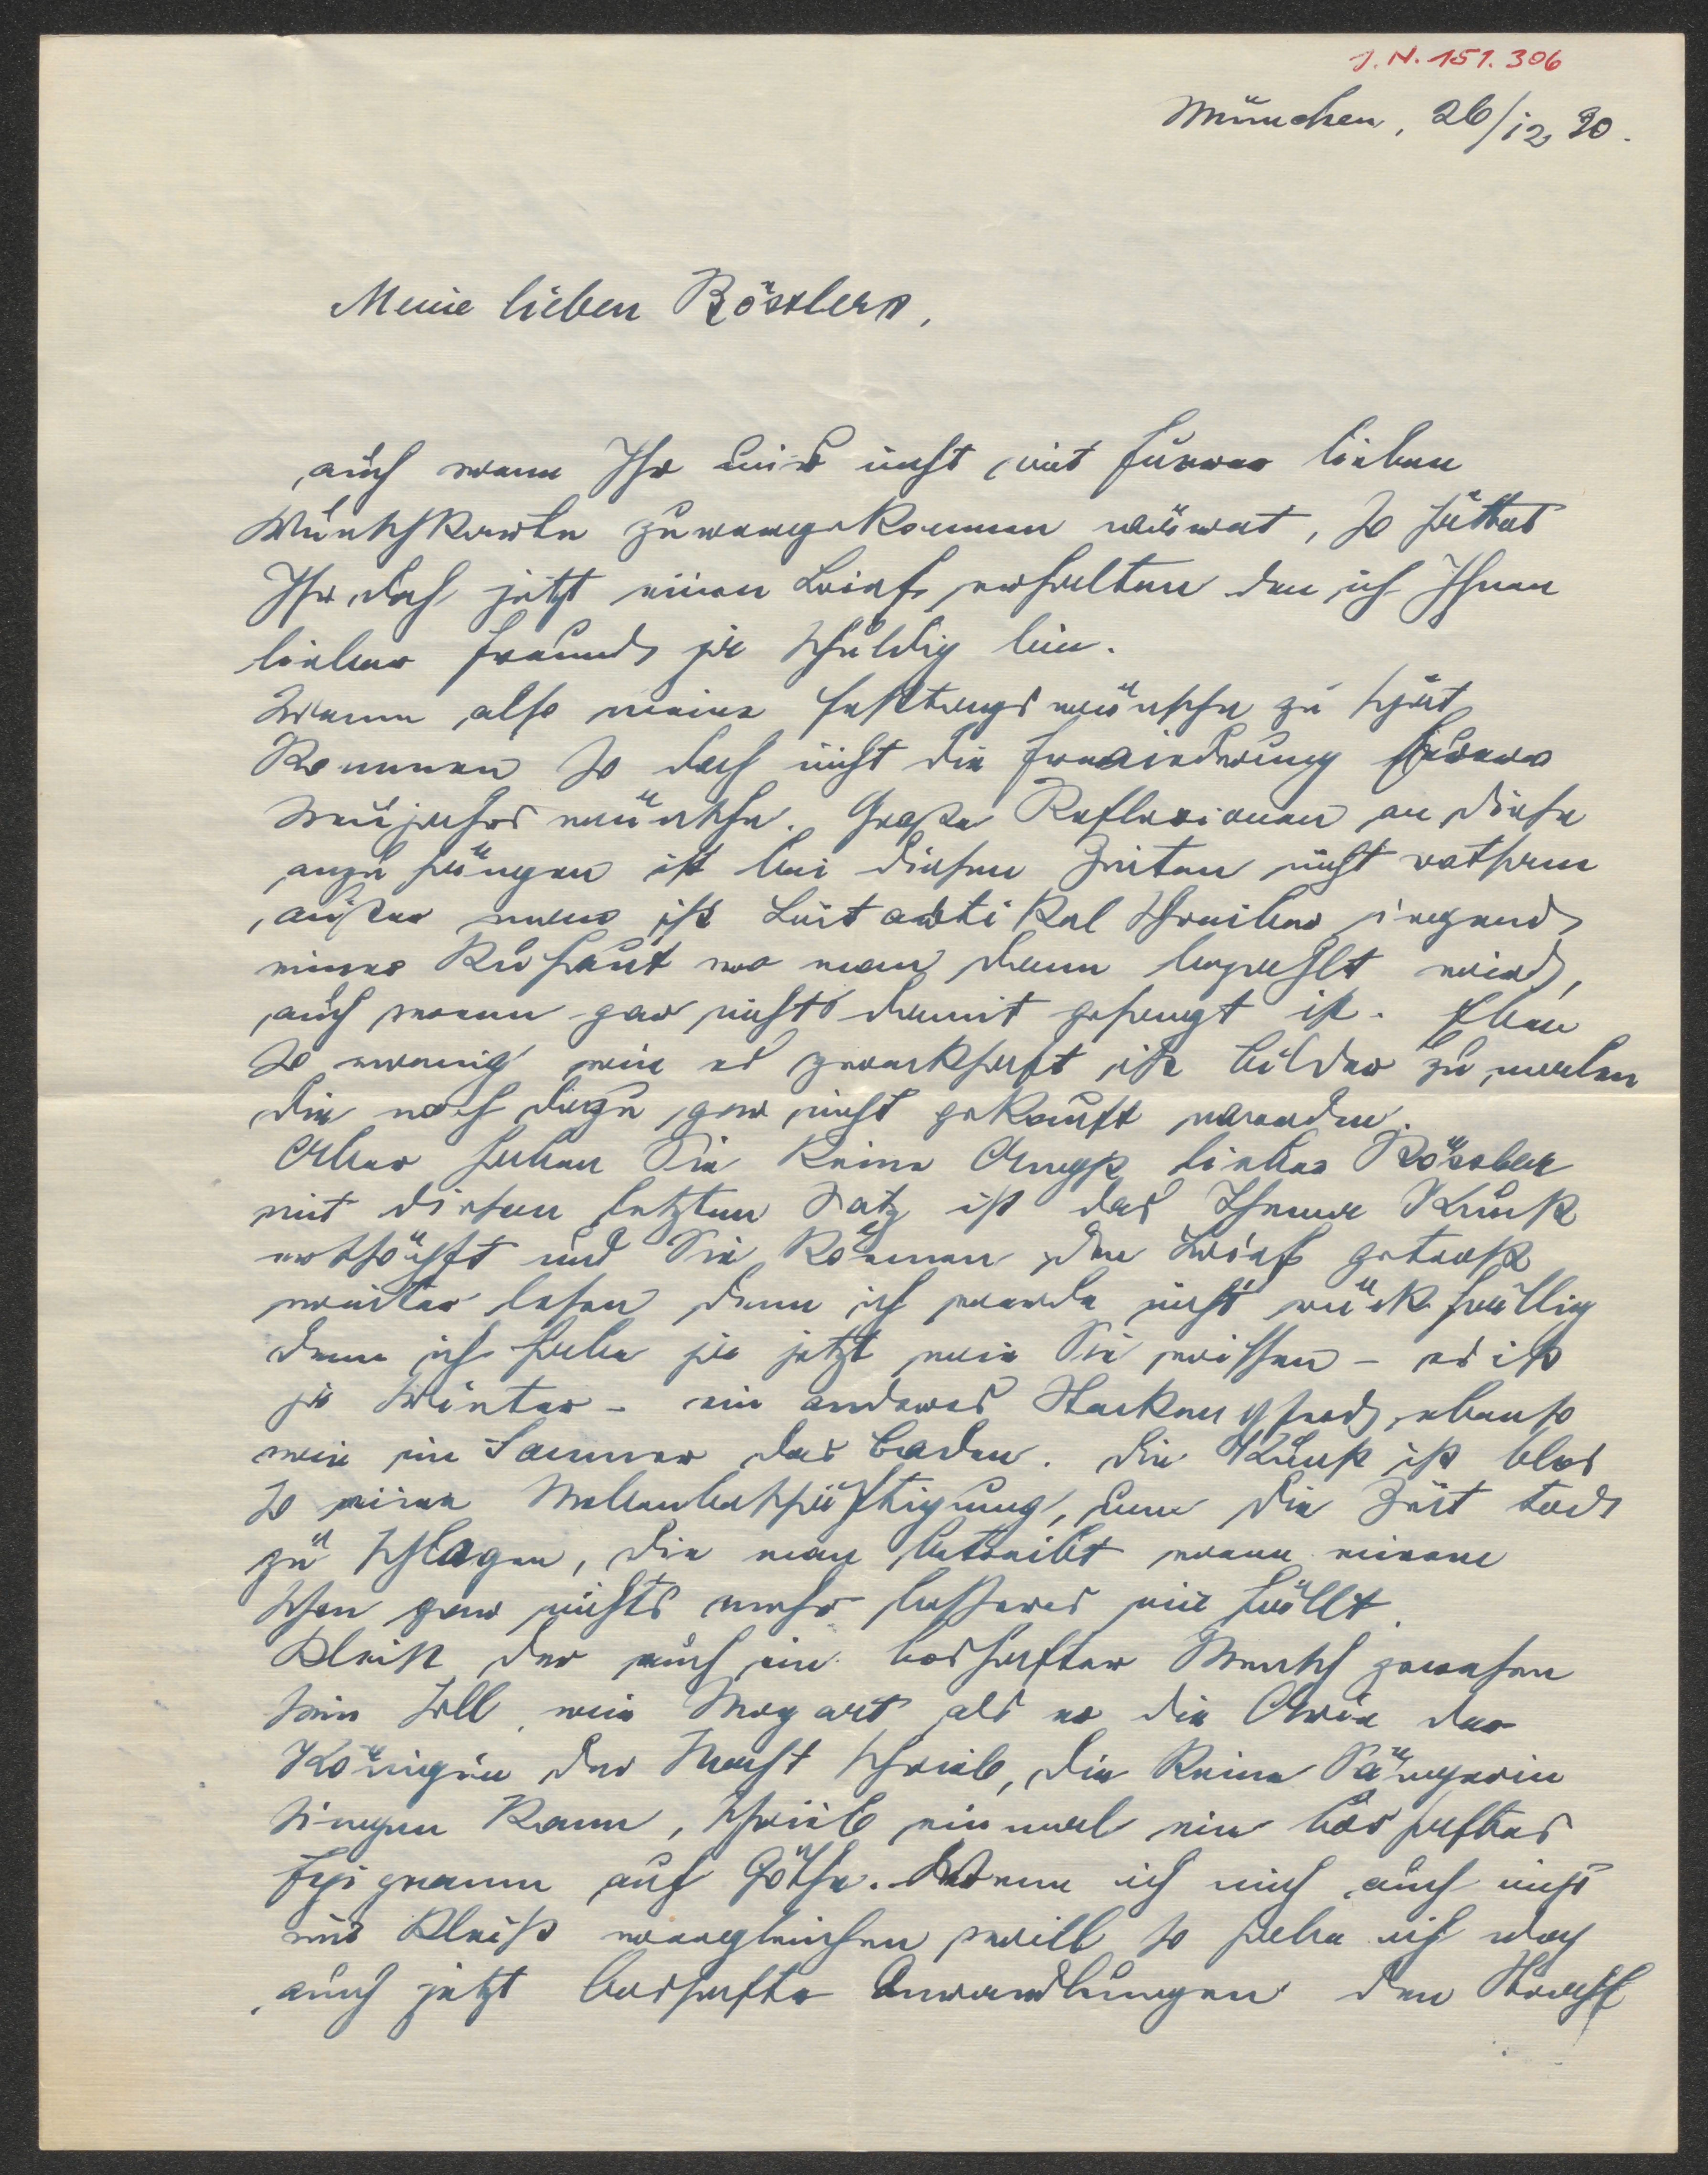 J.N. 151.306
München, 26/12 30.
Meine lieben Rösslers,
auch wenn Ihr mir nicht mit Eurer lieben
Wunschkarte zuvorgekommen wäret, so hättet
Ihr doch jetzt einen Brief erhalten den ich Ihnen
lieber Freund ja schuldig bin.
Wenn also meine Festtagswünsche zu spät
kommen so doch nicht die Erwiederung Eurer
Neujahrswünsche. Große Reflexionen an diese
anzuhängen ist bei diesen Zeiten nicht ratsam
außer man ist Leitartikel Schreiber irgend
einer wo man dann bezahlt wird,
auch wenn gar nichts damit gesagt ist. Eben
so wenig wie es zweckhaft ist Bilder zu malen
die noch dazu gar nicht gekauft werden.
Aber haben Sie keine Angst lieber Rössler
mit diesem letzten Satz ist das Thema Kunst
erschöpft und Sie können den Brief getrost
weiter lesen denn ich werde nicht rückfällig
denn ich habe ja jetzt wie Sie wissen – es ist
ja Winter – ein anderes Steckenpferd ebenso
wie im Sommer das Baden. Die Kunst ist blos
so eine Nebenbeschäftigung, um die Zeit tod
zu schlagen, die man betreibt wenn einem
schon gar nichts mehr besseres einfällt.
Kleist der auch ein boshafter Mensch gewesen
sein soll, wie Mozart als er die Arie der
Königin der Nacht schrieb, die keine Sängerin
singen kann, schrieb einmal ein boshaftes
Epigramm auf Göthe. Wenn ich mich auch nicht
mit Kleist vergleichen will so habe ich doch
auch jetzt boshafte Anwandlungen den